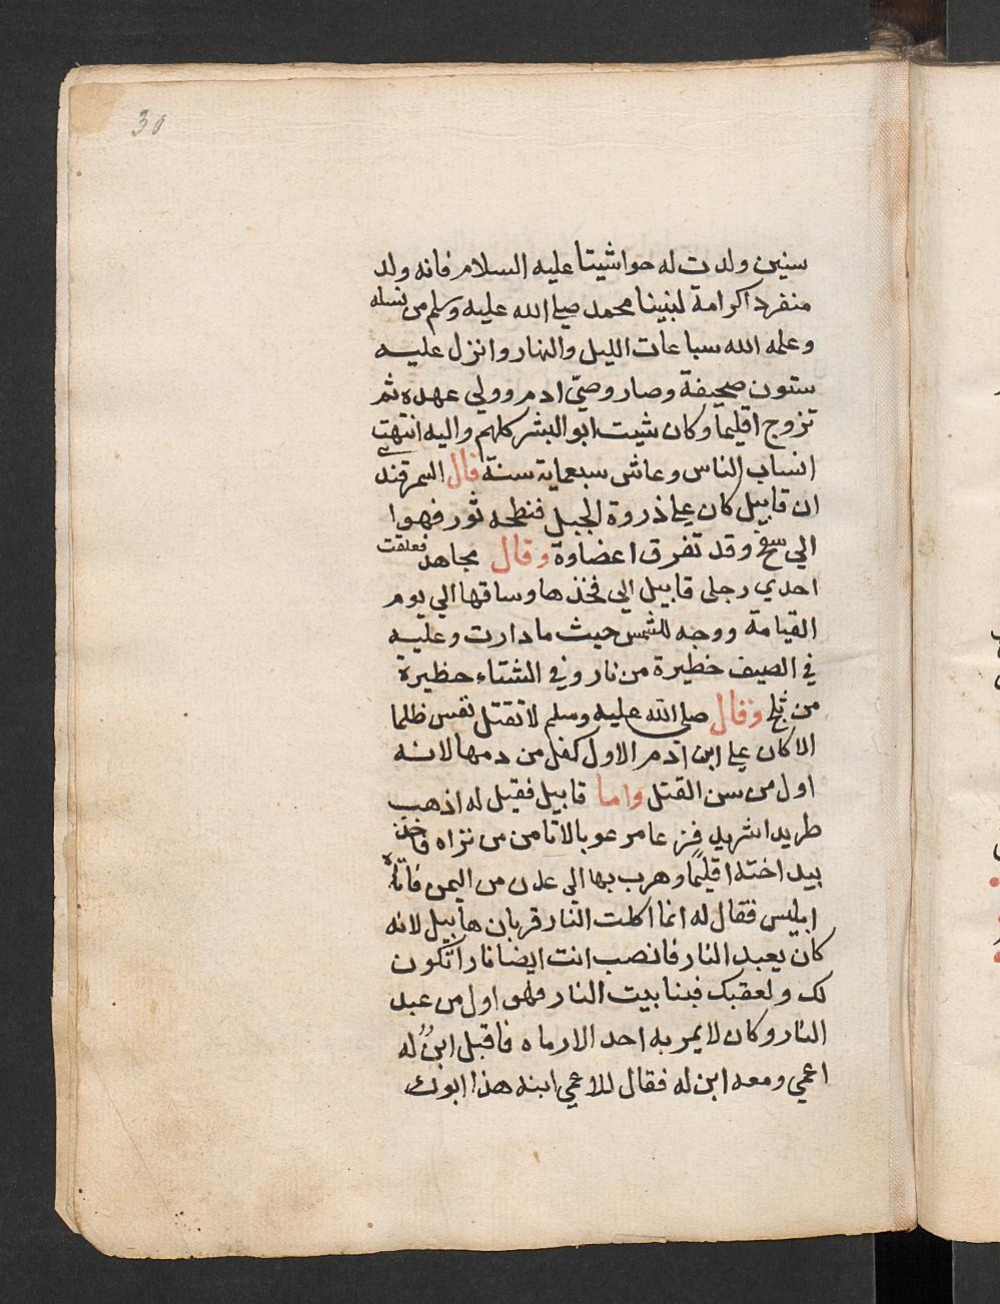 30
سنين ولدت له حوا شيتا عليه السلام فانه ولد
منفردا كرامة لنبينا محمد صلي الله عليه وسلم من نسله
وعلمه الله ساعات الليل والنهار وانزل عليه
ستون صحيفة وصار وصيّ ادم وولي عهده ثم
تزوج اقليما وكان شيت ابو البشر كلهم واليه انتهت
انساب الناس وعاش سبعماية سنة قال السمرقندي
ان قابيل كان علي ذروة الجبل فنطحه ثور فهوا
الي سفح وقد تفرق اعضاوة وقال مجاهد فعلقت
احدي رجلي قابيل الي فخذها وساقها الي يوم
القيامة ووجه للشمس حيث ما دارت وعليه
في الصيف خظيرة من نار وفي الشتاء حظيرة
من ثلج وقال صلي الله عليه وسلم لا تقتل نفس ظلما
الا كان علي ابن آدم الاول كفل من دمها لانه
اول من سن القتل واما قابيل فقيل له اذهب
طريدا شريد فزعا مرعوبا لا تامن من تراه فاخذ
بيد اخته اقليمًا وهرب بها الي عدن من اليمن فاتاه
ابليس فقال له انما اكلت النار قربان هابيل لانه
كان يعبد النار فانصب انت ايضا نارا تكون
لك ولعقبك فبنا بيت النار وهو اول من عبد
النار وكان لا يمر به احد الا رماه فاقبل ابنٌ له
اعمي ومعه ابن له فقال للاعمي ابنه هذا ابوك